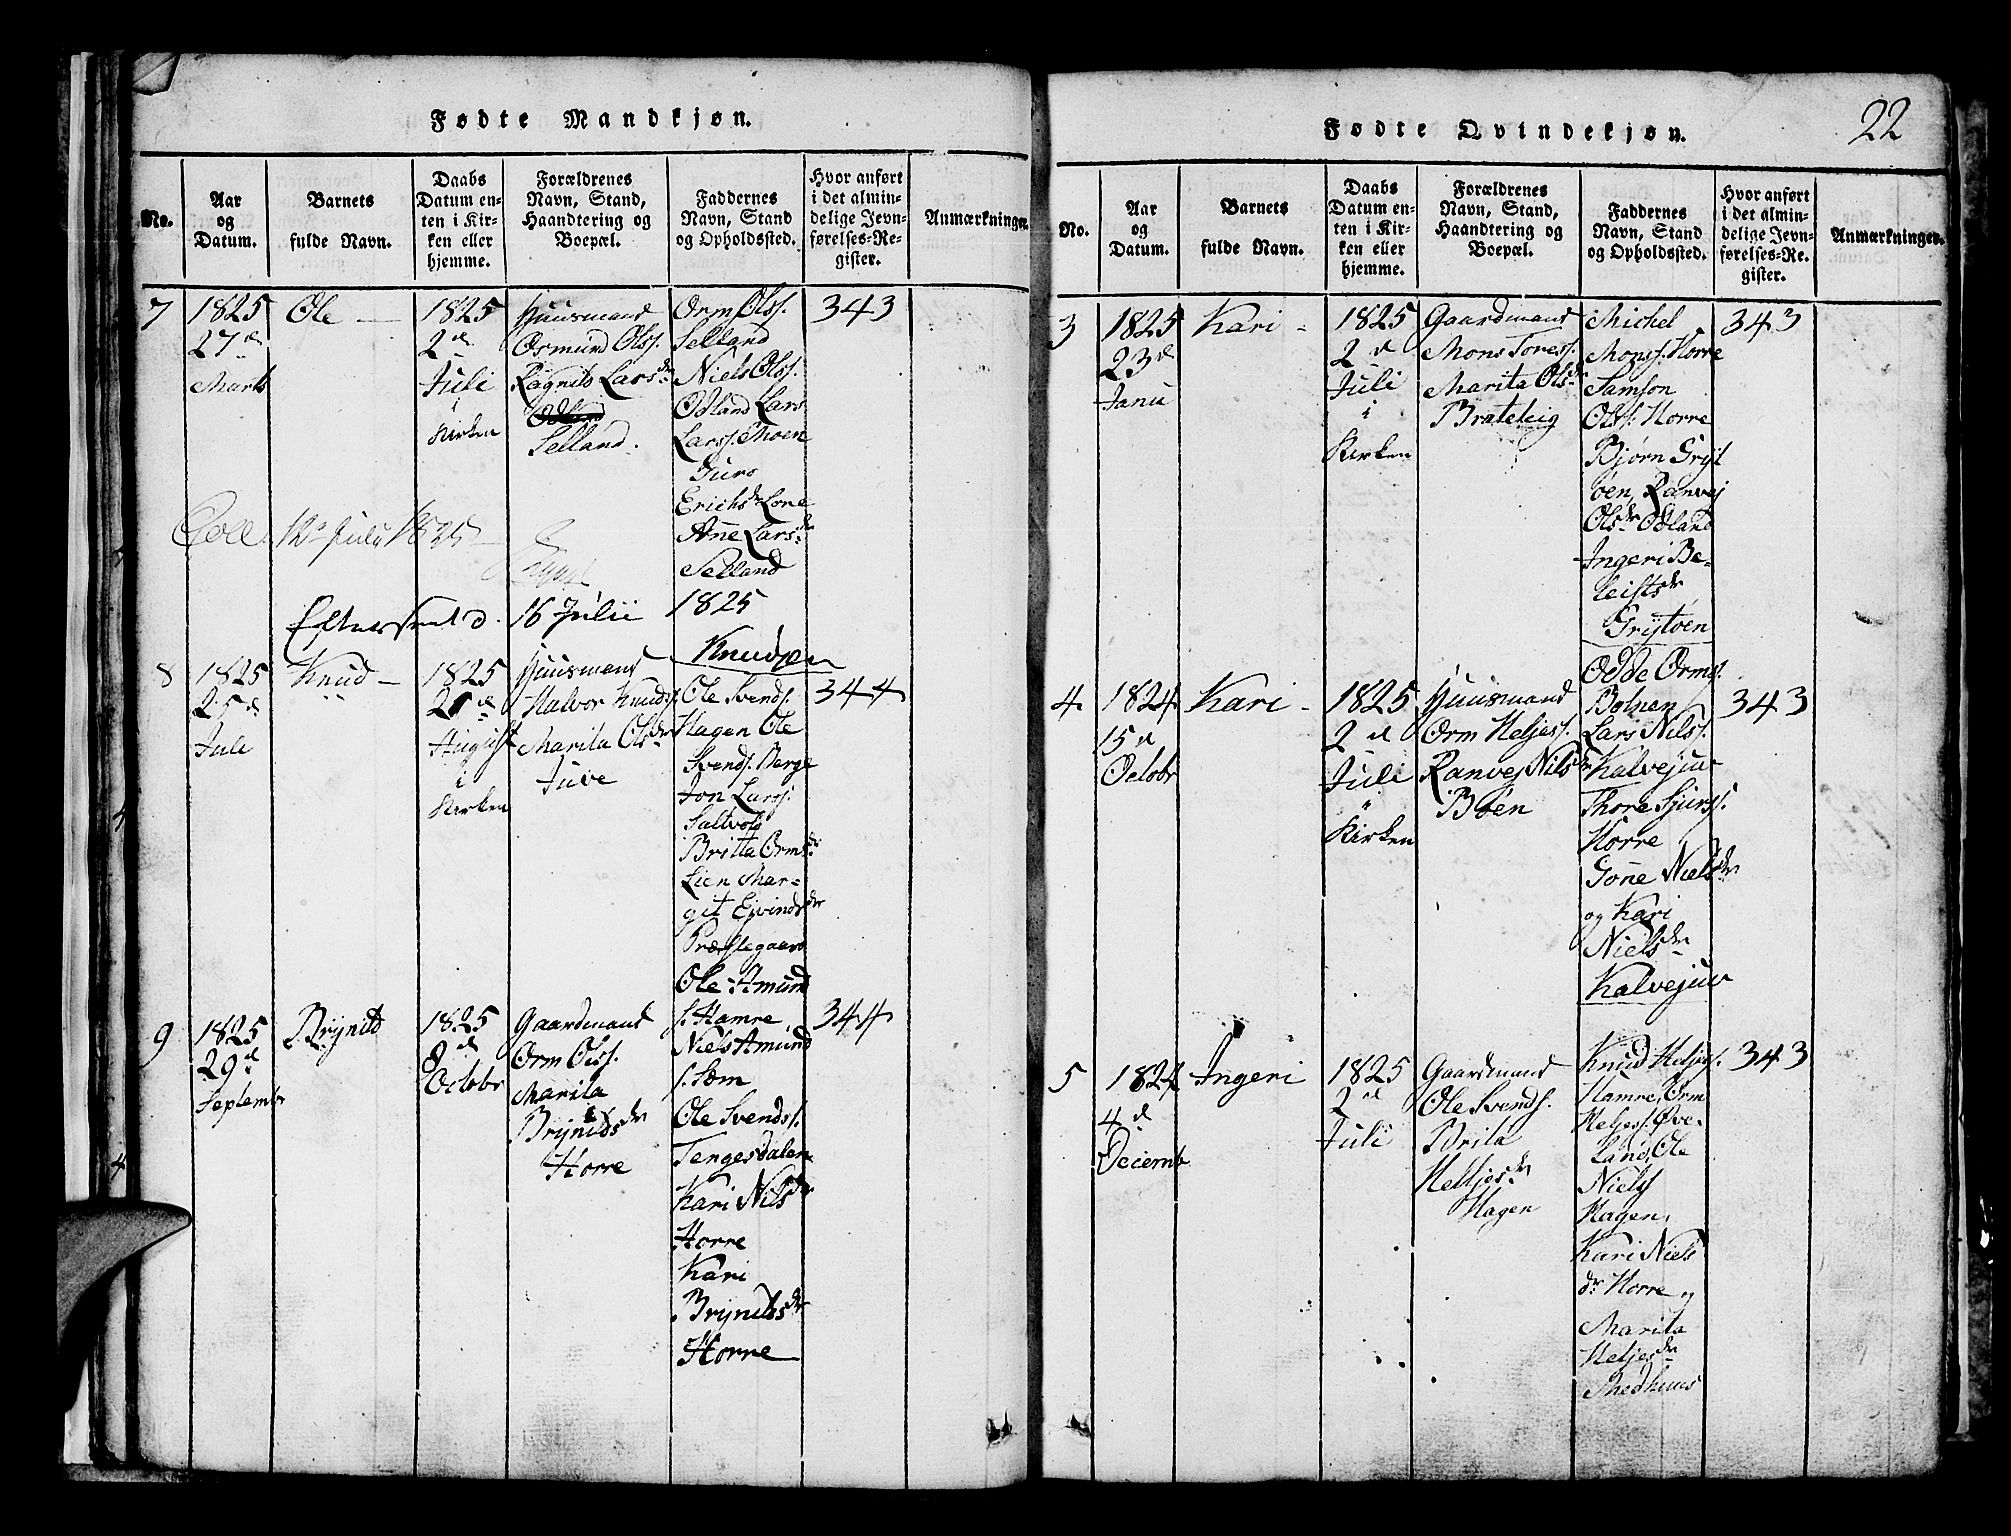 Fødte Mandkjøn.
No.
Aar
og
Datum.
Barnets
fulde Navn.
Daabs
Datum en-
ten i Kir-
ken eller
hjemme.
Forældrenes
Navn, Stand,
Haandtering og
Boepæl.
Faddernes
Navn, Stand
og Opholdssted.
Hvor anført
i det almin-
delige Jevn-
førelses-Re-
gister.
Anmærkninger.
7
1825
27de
Marts
Ole —
1825
2de
Juli
i
Kirken
Huusmand
Osmund Olss.
Ragnild Larsdr
Selland.
Orm Olss.
Selland
Niels Olss.
Odland Lars
Larss. Moen
Guro
Erichsdr Lone
Ane Larsdr
Selland
343
12te Julii 1825
Efterseet d. 16 Julii 1825
Knudsen
8
1825
25de
Juli
Knud —
1825
21de
August
i
Kirken
Huusmand
Halvor Knuds.
Marita Olsdr
Juve
Ole Svends.
Hagen Ole
Svends. Berge
Jon Larss.
Saltvold
Britta Ormsdr
Lien Mar-
git Eivindsdr
Præstegaard
344
9
1825
29de
Septembr
Brynild
1825
8de
Octobr
Gaardmand
Orm Olss.
Marita
Brynildsdr
Horre
Ole Amund
s. Hamre
Niels Amund
s. Sæm
Ole Svendss.
Tengesdalen
Kari Nilsdr
Horre
Kari
Brynildsdr
Horre
344
Fødte Qvindekjøn.
22
No.
Aar
og
Datum.
Barnets
fulde Navn.
Daabs
Datum en-
ten i Kir-
ken eller
hjemme.
Forældrenes
Navn, Stand,
Haandtering og
Boepæl.
Faddernes
Navn, Stand
og Opholdssted.
Hvor anført
i det almin-
delige Jevn-
førelses-Re-
gister.
Anmærkninger.
3
1825
23de
Janu
Kari -
1825
2de
Juli
i
Kirken
Gaardmand
Mons Toress.
Marita Olsdr
Brateteig
Michel
Monss. Horre
Samson
Olss. Horre
Bjørn Gryt
øen, Ranvej
Olsdr Odland
Ingeri Be-
leiftsdr
Grytøen
343
4
1824
15de
Octobr
Kari -
1825
2de
Juli
i
Kirken
Huusmand
Orm Heljess.
Ranvej Nilsdr
Bøen
Odde Orms.
Botnen
Lars Nilss.
Kalvejuv
Thore Sjurss.
Horre
Gøne Nielsdr
og Kari
Nielsdr
Kalvejuv
343
5
1824
4de
Decemb
Ingeri
1825
2de
Juli
Gaardmand
Ole Svends.
Brita
Heltjesdr
Hagen
Knud Heljess.
Hamre, Orm
Heljess. Øve-
Land, Ole
Niels
Hagen,
Kari Niels
dr Horre og
Marita
Heljesdr
343